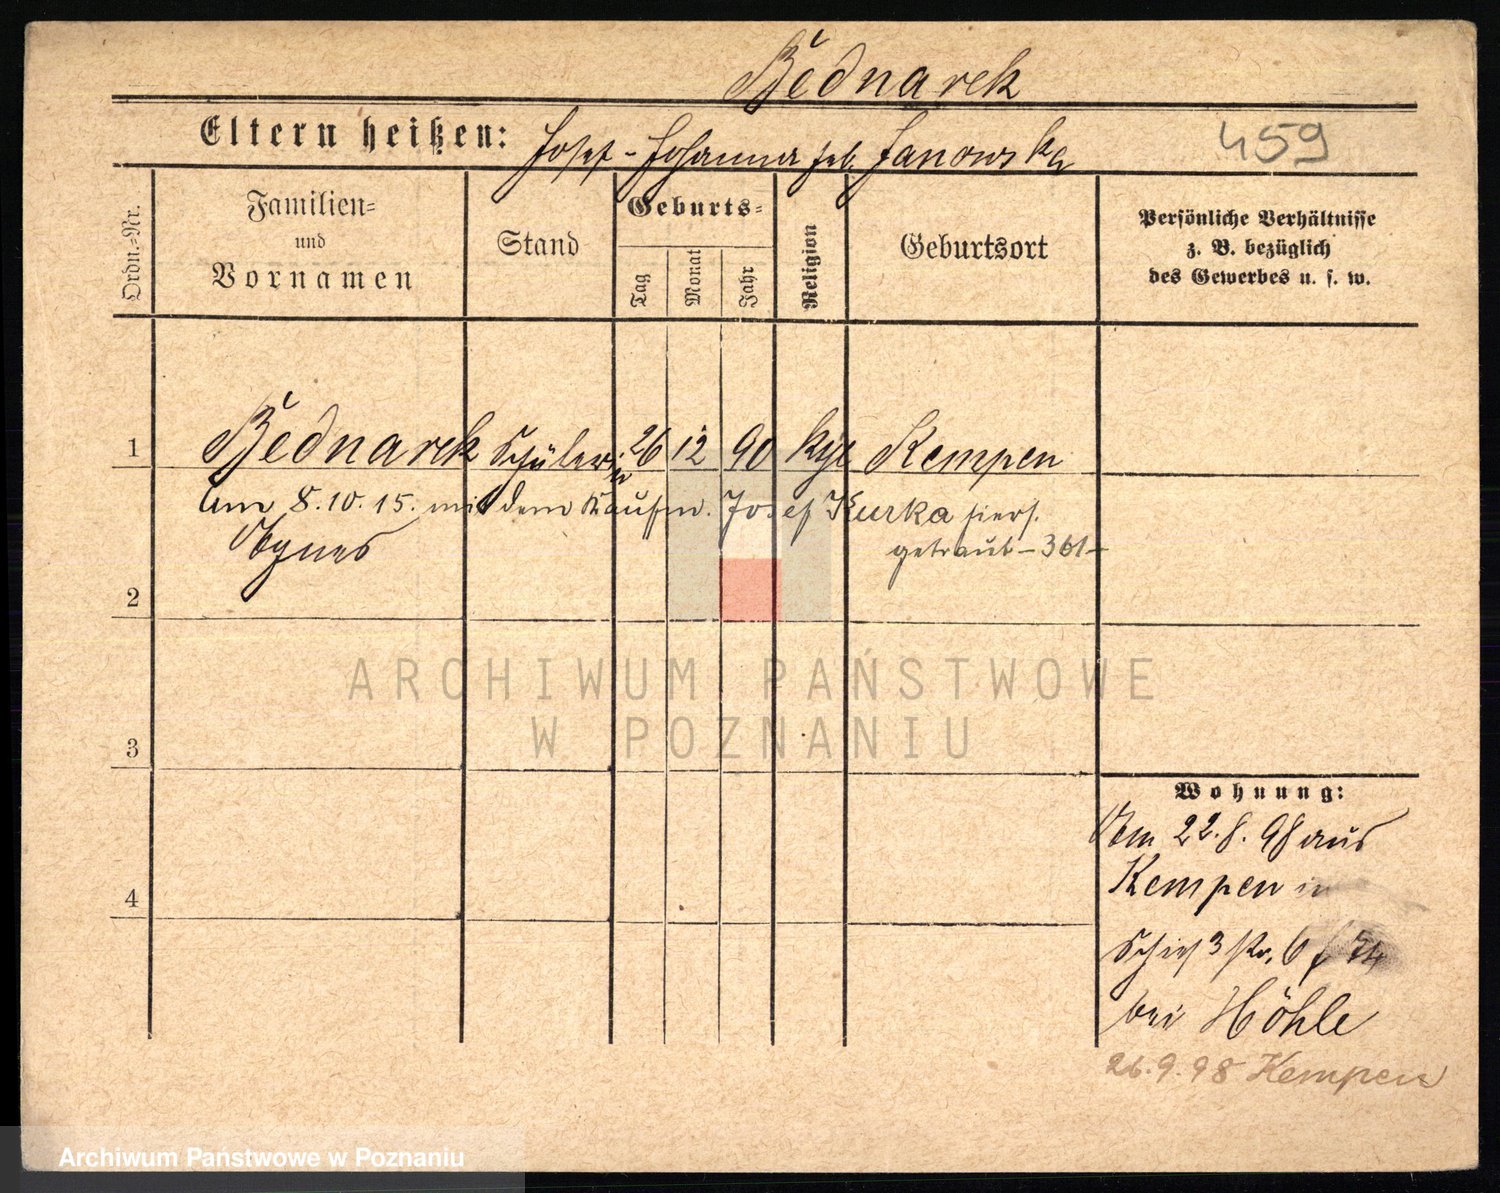 Bednarek
Eltern heißen: Josef - Johanna geb. Janowska
459
Ordn.=Nr.
Familien=
und
Vornamen
Stand
Geburts=
Tag
Monat
Jahr
Religion
Geburtsort
Persönliche Verhältnisse
z. B. bezüglich
des Gewerbes u. s. w.
1 Bednarek Schülerin 26 12 90 Kempen
Am 8.10.15. mit dem Kaufm. Josef Kurka hiers.
getraut - 361 -
Agnes
2
ARCHIWUM PAŃSTWOWE
W POZNANIU
3
Wohnung:
Am 22.8.98 aus
Kempen in
4
Str. 6
bei Höhle
26.9.98 Kempen
Archiwum Państwowe w Poznaniu